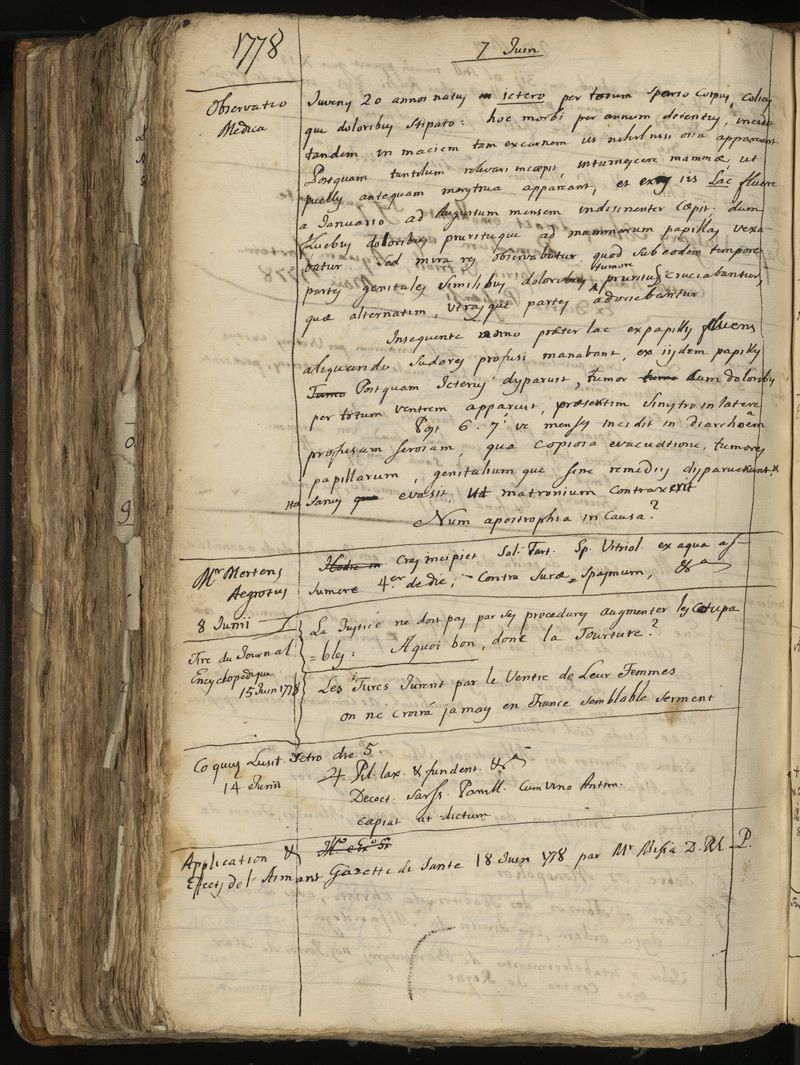 1778
7 Juin
Observatio
Medica
Juvenis 20 annos natus in ictero per totum sparso corpus, colicis
que doloribus stipato: hoc morbi per annum detentus,
tandem in maciem tam excarnem ut nihil nisi ossa apparerent
Postquam tantilum relevari incæpit, intumescere mammæ, ut
puellis antequam menstrua appareant, et ex iis Lac fluere
a Januario ad Augustum mensem indesinenter cœpit. dum
quibus doloribus prurituque ad mammarum papillas vexa
batur. Sed mira res observabatur quod sub eodem tempore
partes genitales similibus doloribus, tumore pruritus cruciabantur,
quæ alternatim, utrasque partes adoriebantur
Insequente anno præter lac ex papillis fluens
aliquando sudores profusi manabant, ex iisdem papillis
Tumo Postquam Icterus disparuit, tumor tumo cum doloribus
per totum ventrem apparuit, præsertim sinistro in latere
Post 6. 7.ve menses incidit in diarrhœam
profusam serosam, qua copiosa evacuatione, tumores
papillarum, genitaliumque sine remediis disparuerunt
Ita sanus que evasit, ut matronium contraxerit
Num apostrophia in causa?
Mr Mertens
Aegrotus
Hodie in Cras incipiet Sal. Tart. Sp. Vitriol. ex aqua as-
sumere 4.er de die; - Contra Suræ Spasmum, &a
8 Junii
La Justice ne doit pas par ses procedures augmenter les Coupa
= bles: A quoi bon, donc la Tourture?
Tire du Journal
Encyclopedique
15 Juin 1778
Les Turcs Jurent par le Ventre de Leur Femmes
on ne croirá jamais en France semblable serment
Coquus Lusit. Petro die 5.
14 Junii
♃ Pil. lax. & fundent. &a
Decoct. Sarss. Parill. cum vino Antim.
capiat ut dictum
Application &
Effects de l'Aimant Gazette de Sante 18 Juin 1778 par Mr D. M. P.